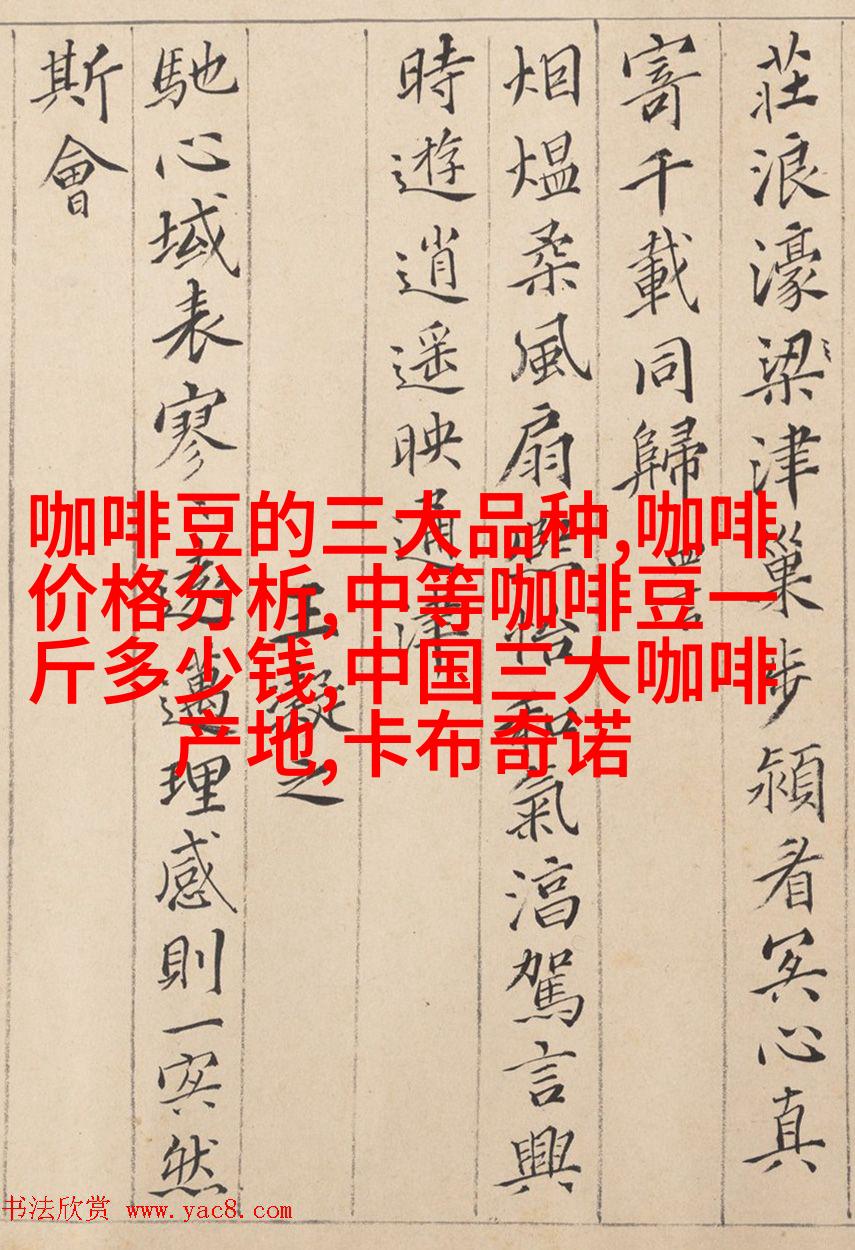 莊浪濠梁津巢步潁眉冥心真
寄千載同歸 四言
烟熅柔風扇熙怡和氣淳駕言興
時遊逍遥映通津
王凝之
馳心域表寥〻遠邁理感則一冥然
斯會
咖啡豆的三大品种,咖啡
价格分析,中等咖啡豆一
斤多少钱,中国三大咖啡
产地,卡布奇诺
书法欣赏 www.yac8.com